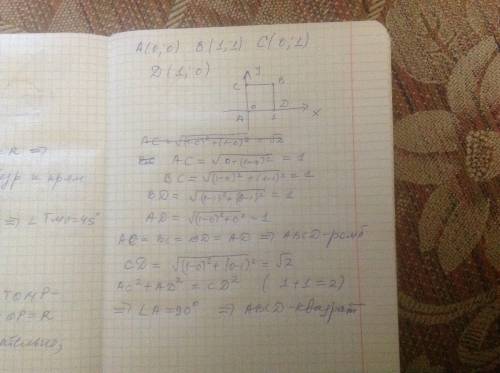 A(0;0) B(1;1) C(0;1)
D(1;0)
y
C B
0 D
A 1 x
AC = √(1-0)²+(1-0)² = √2
AC = √0+(1-0)² = 1
BC = √(1-0)²+(1-1)² = 1
BD = √(1-1)²+(0-1)² = 1
AD = √(1-0)²+0² = 1
AC = BC = BD = AD ⇒ ABCD-ромб
CD = √(1-0)²+(0-1)² = √2
AC²+AD² = CD² (1+1=2)
⇒ ∠A=90° ⇒ ABCD-квадрат
R ⇒
и прям
⇒ ∠TMO=45°
TOMP-
OP=R